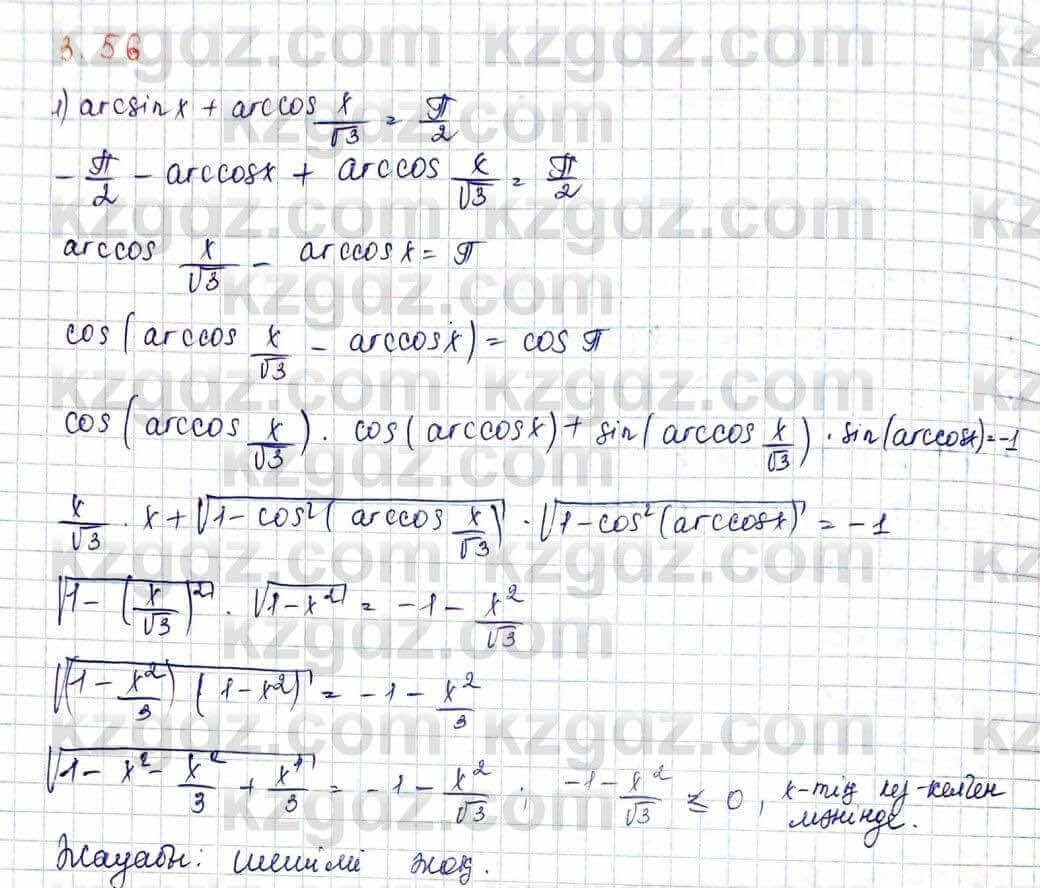 3.56
1) arcsin x + arccos x/√3 = π/2
- π/2 - arccos x + arccos x/√3 = π/2
arccos x/√3 - arccos x = π
cos(arccos x/√3 - arccos x) = cos π
cos(arccos x/√3) · cos(arccos x) + sin(arccos x/√3) · sin(arccos x) = -1
x/√3 · x + √(1 - cos²(arccos x/√3)) · √(1 - cos²(arccos x)) = -1
√(1 - (x/√3)²) · √(1 - x²) = -1 - x²/√3
√((1 - x²/3)(1 - x²)) = -1 - x²/3
√(1 - x² - x²/3 + x⁴/3) = -1 - x²/√3 ; -1 - x²/√3 ≤ 0, x-тің кез-келген мәнінде.
Жауабы: шешімі жоқ.
kzgdz.com